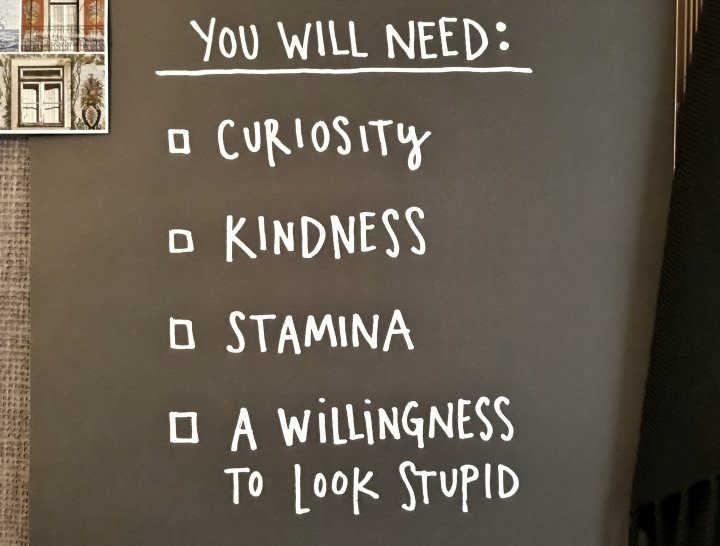 YOU WILL NEED:
CURIOSITy
KINDNESS
STAMINA
A WiLLiNGNESS
To LooK STUPID